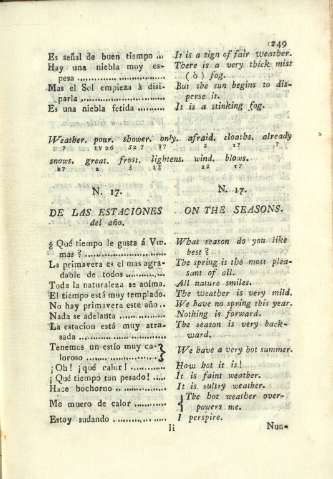 249
Es señal de buen tiempo ... It is a sign of fair weather.
Hay una niebla muy es- There is a very thick mist
pesa ..................... ( ò ) fog.
Mas el Sol empieza à disi- But the sun begins to dis-
parla ..................... perse it.
Es una niebla fetida ......... It is a stinking fog.
Weather. pour. shower. only. afraid. cloaths. already
snows. great. frost. lightens. wind. blows.
N. 17. N. 17.
DE LAS ESTACIONES ON THE SEASONS.
del año.
¿ Qué tiempo le gusta á Vm. What season do you like
mas ? ..................... best ?
La primavera es el mas agra- The spring is the most plea-
dable de todos ............ sant of all.
Toda la naturaleza se anima. All nature smiles.
El tiempo está muy templado. The weather is very mild.
No hay primavera este año .. We have no spring this year.
Nada se adelanta ............ Nothing is forward.
La estacion está muy atra- The season is very back-
sada ..................... ward.
Tenemos un estío muy ca- We have a very hot summer.
loroso .....................
¡ Oh ! ¡ qué calor ! ............ How hot it is !
¡ Qué tiempo tan pesado ! .... It is faint weather.
Hace bochorno ............... It is sultry weather.
Me muero de calor ............ The hot weather over-
powers me.
Estoy sudando ............... I perspire.
Ii Nun-